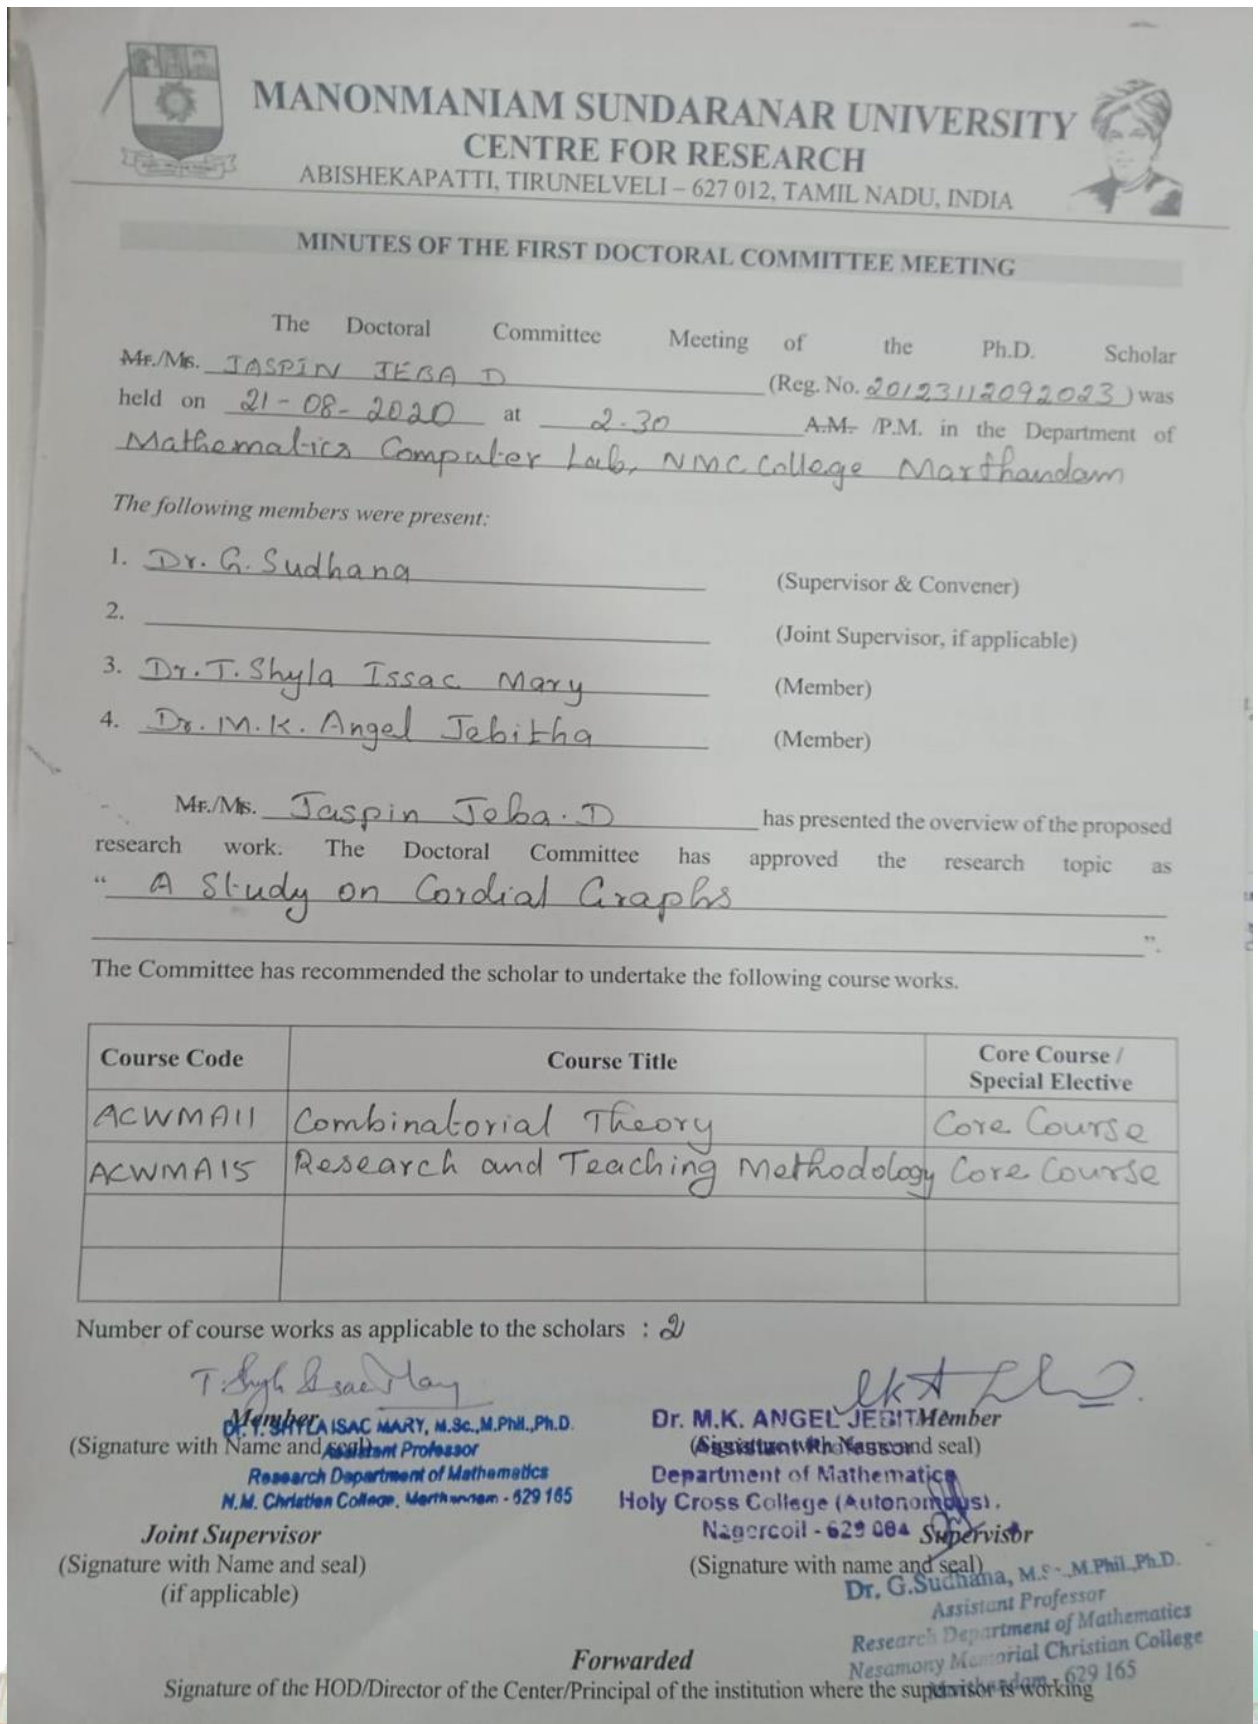 MANONMANIAM SUNDARANAR UNIVERSITY
CENTRE FOR RESEARCH
ABISHEKAPATTI, TIRUNELVELI – 627 012, TAMIL NADU, INDIA
MINUTES OF THE FIRST DOCTORAL COMMITTEE MEETING
The Doctoral Committee Meeting of the Ph.D. Scholar
Mr./Ms. JASPIN JEBA D (Reg. No. 20123112092023) was
held on 21-08-2020 at 2.30 A.M. /P.M. in the Department of
Mathematics Computer Lab, NMC College Marthandam
The following members were present:
1. Dr. G. Sudhana (Supervisor & Convener)
2. (Joint Supervisor, if applicable)
3. Dr. T. Shyla Issac Mary (Member)
4. Dr. M.K. Angel Jebitha (Member)
Mr./Ms. Jaspin Jeba. D has presented the overview of the proposed
research work. The Doctoral Committee has approved the research topic as
“ A Study on Cordial Graphs
”.
The Committee has recommended the scholar to undertake the following course works.
Course Code Course Title Core Course / Special Elective
ACWMA11 Combinatorial Theory Core Course
ACWMA15 Research and Teaching Methodology Core Course
Number of course works as applicable to the scholars : 2
Member
Dr. T. SHYLA ISAC MARY, M.Sc.,M.Phil.,Ph.D.
(Signature with Name and seal)
Assistant Professor
Research Department of Mathematics
N.M. Christian College, Marthandam - 629 165
Dr. M.K. ANGEL JEBITHA
Member
(Signature with Name and seal)
Assistant Professor
Department of Mathematics
Holy Cross College (Autonomous).
Nagercoil - 629 004
Joint Supervisor
(Signature with Name and seal)
(if applicable)
Supervisor
(Signature with name and seal)
Dr. G.Sudhana, M.Sc., M.Phil.,Ph.D.
Assistant Professor
Research Department of Mathematics
Nesamony Memorial Christian College
Marthandam - 629 165
Forwarded
Signature of the HOD/Director of the Center/Principal of the institution where the supervisor is working